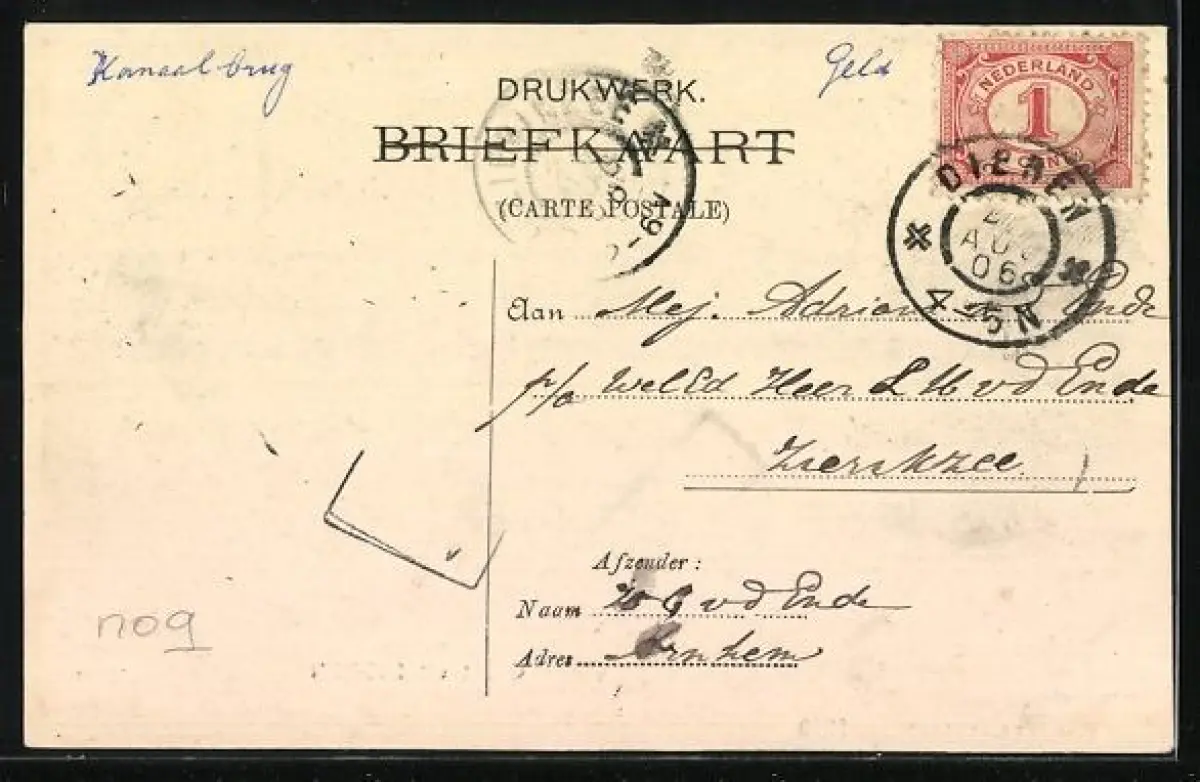 Kanaalbrug
Geld
DRUKWERK.
BRIEFKAART
(CARTE POSTALE)
NEDERLAND
1
CENT
DIEREN
AUG
06
4-5N
6-9V
Aan Mej. Adriana Ende
p/a WelEd Heer L M vd Ende
Zierikzee
Afzender:
Naam vd Ende
Adres Arnhem
nog